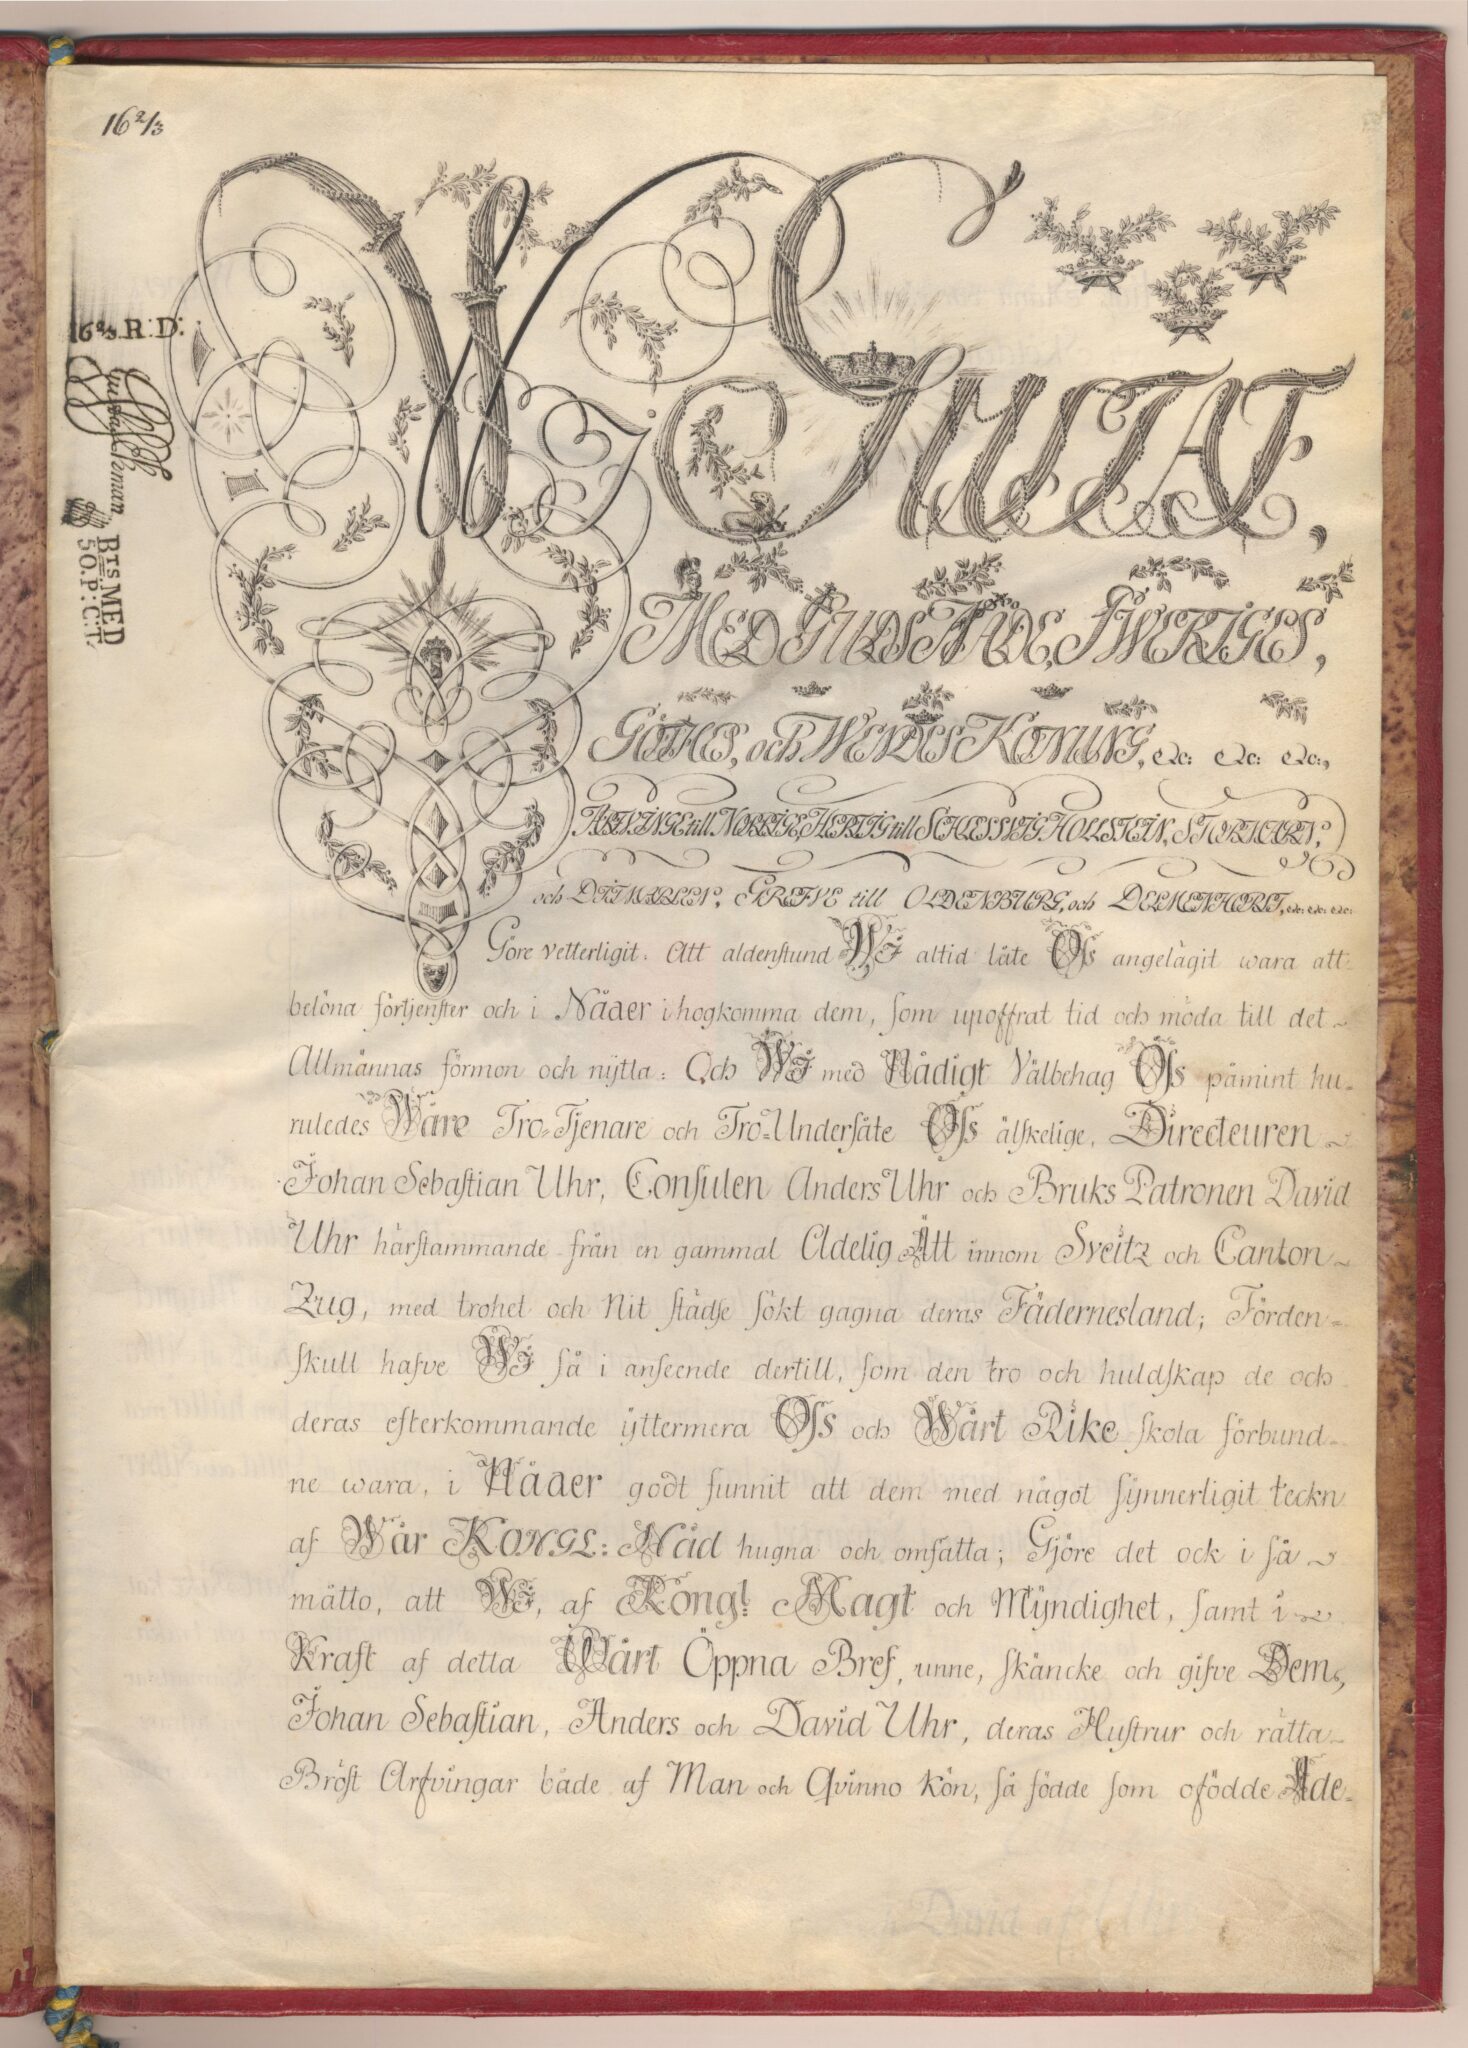 16 2/3
16 2/3 R:D:
BrsMED
50.P:C:T.
Wi GUSTAF,
MED GUDS NÅDE, SWERIGES,
GÖTHES, och WENDES KONUNG, &c: &c: &c:,
ARFWINGE till NORRIGE, HERTIG till SCHLESSWIG HOLLSTEIN, STORMARN,
och DITMARSEN, GREFVE till OLDENBURG, och DELMENHORST, &c: &c: &c:
Göre vetterligit. Att aldenstund Wi altid låte Oſs angelägit wara att
belöna förtjenſter och i Nåder ihogkomma dem, ſom upoffrat tid och möda till det
Allmännas förmon och nytta: Och Wi med Nådigt Välbehag Oſs påmint hu-
ruledes Wåre Tro=Tjenare och Tro=Underſåte Oſs älſkelige, Directeuren
Johan Sebaſtian Uhr, Conſulen Anders Uhr och Bruks Patronen David
Uhr härſtammande från en gammal Adelig Ätt innom Sveitz och Canton
Zug, med trohet och Nit ſtädſe ſökt gagna deras Fädernesland; Förden=
ſkull hafve Wi ſå i anſeende dertill, ſom den tro och huldſkap de och
deras efterkommande ÿttermera Oſs och Wårt Rike ſkola förbund-
ne wara, i Nåder godt funnit att dem med något ſÿnnerligit teckn
af Wår KONGL: Nåd hugna och omfatta; Gjöre det ock i ſå
måtto, att Wi, af Kongl: Magt och Mÿndighet, ſamt i
Kraft af detta Wårt Öppna Bref, unne, ſkäncke och gifve Dem,
Johan Sebaſtian, Anders och David Uhr, deras Huſtrur och rätta
Bröſt Arfvingar både af Man och Qvinno Kön, ſå födde ſom ofödde Ade-